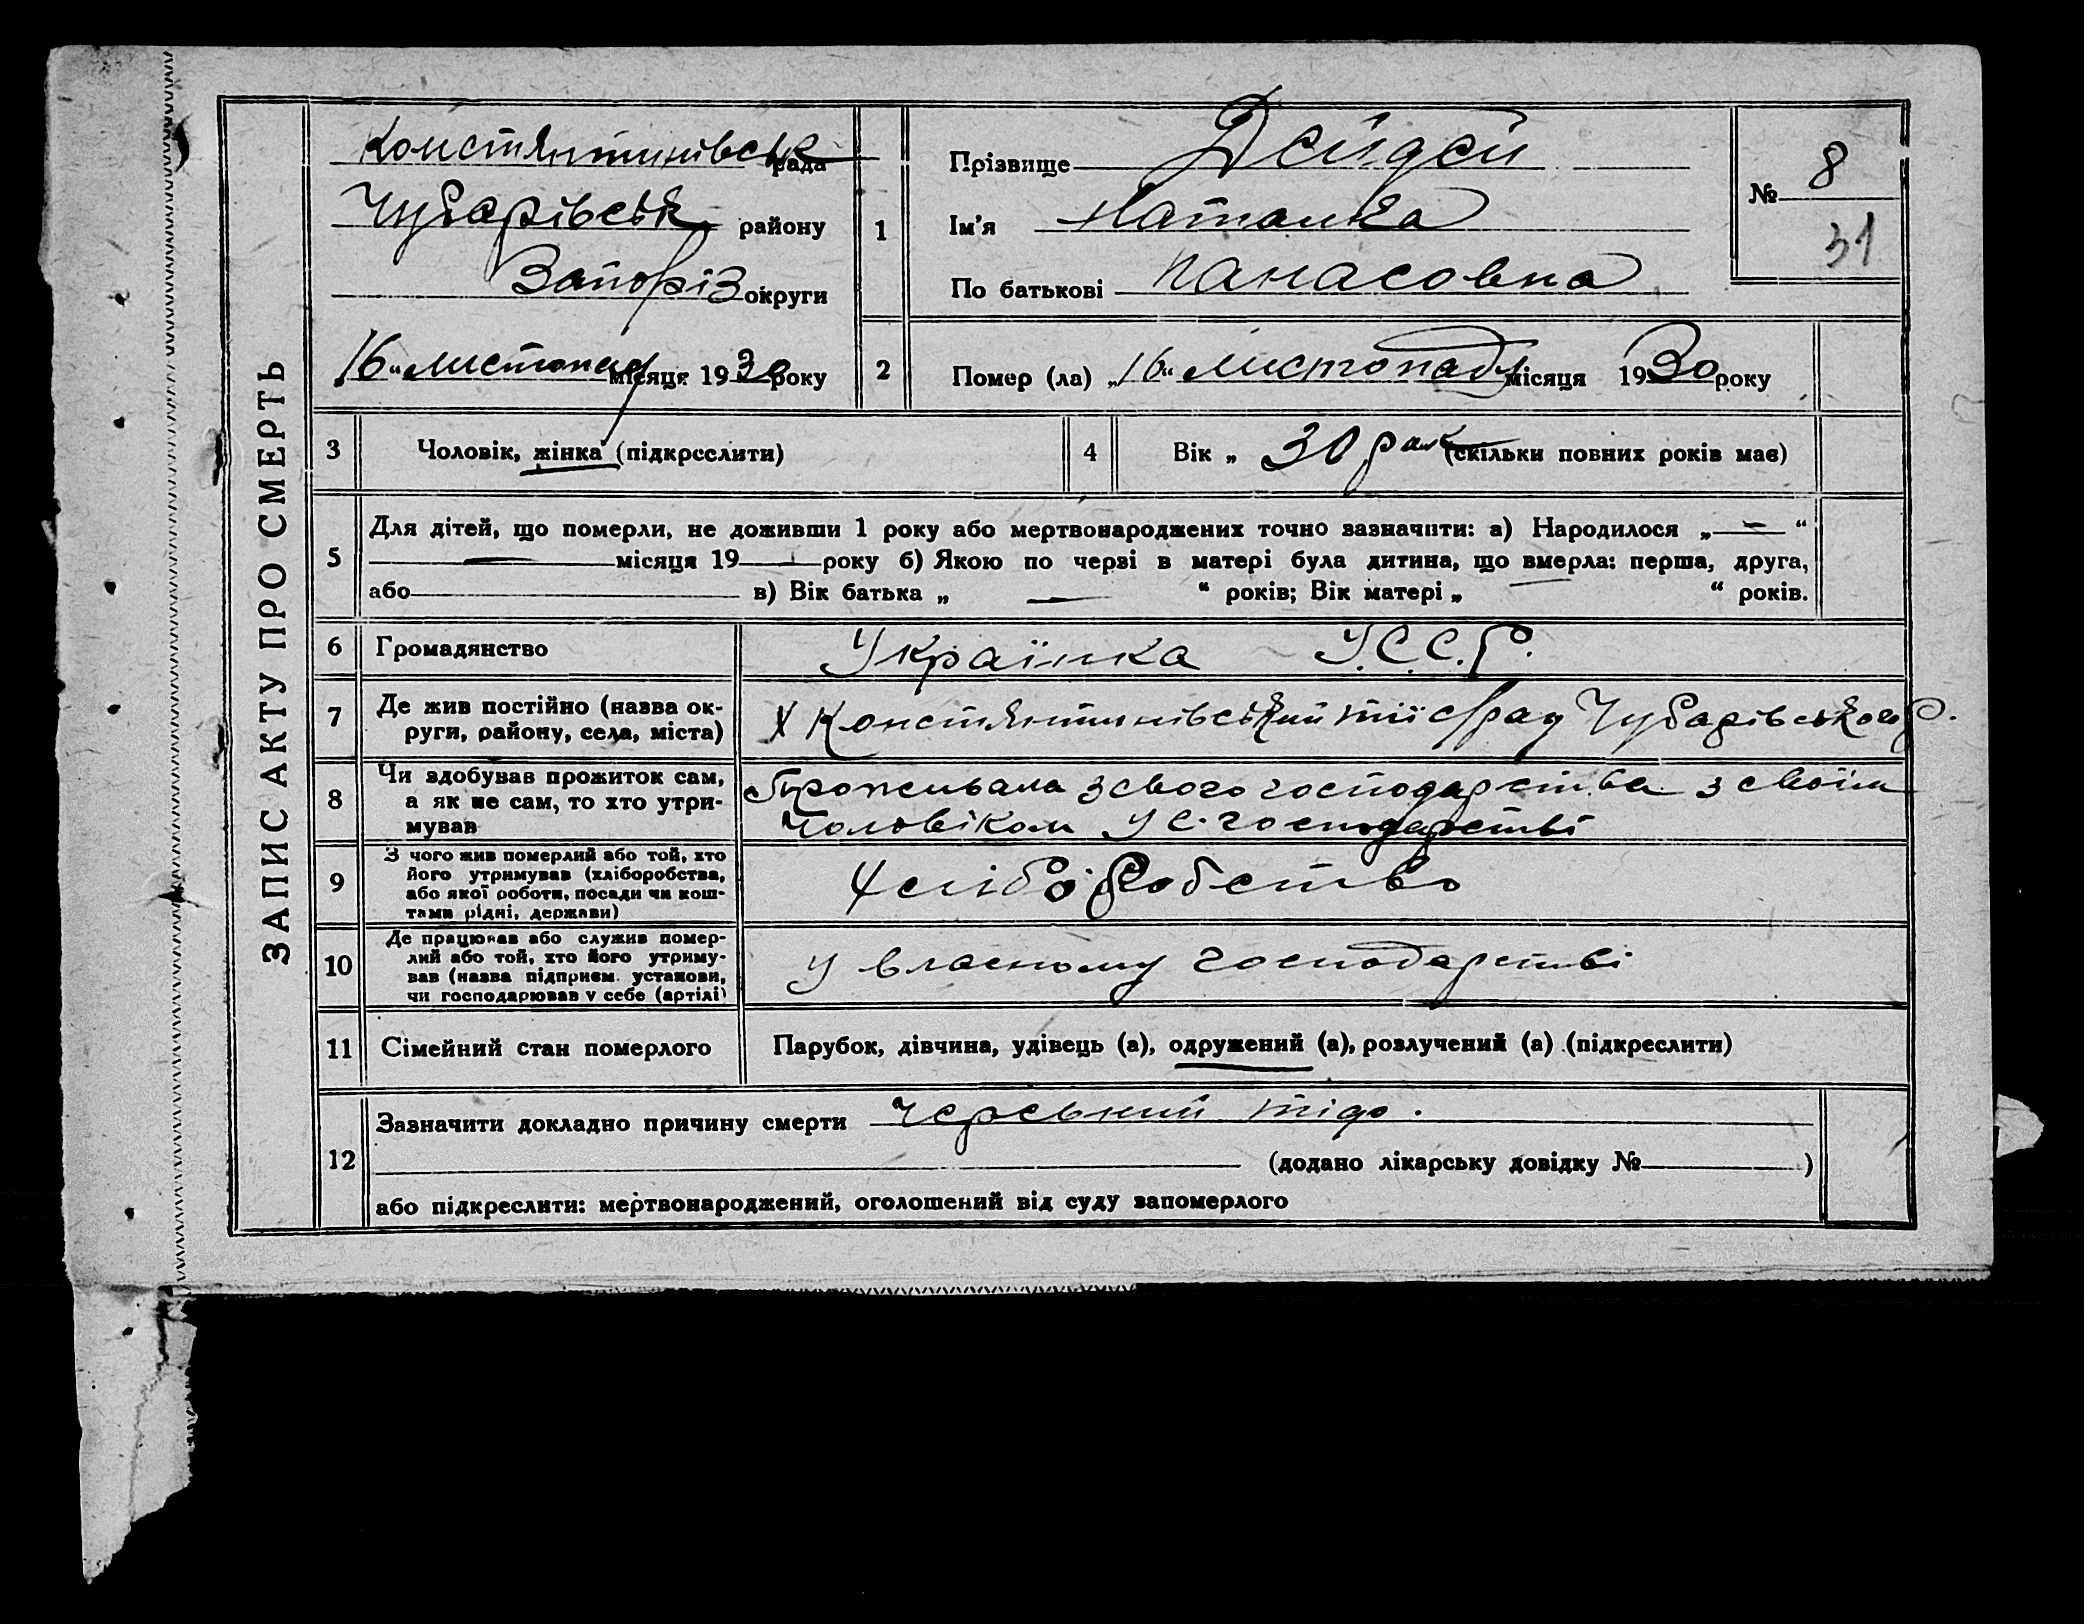 ЗАПИС АКТУ ПРО СМЕРТЬ
Констянтинівськ рада
Чубарівськ району
Запоріз округи
"16" листопад місяця 1930 року
1
Прізвище Дейдей
Ім'я Наталка
По батькові Панасовна
№ 8
31
2
Помер (ла) „16" листопада місяця 1930 року
3
Чоловік, жінка (підкреслити)
4
Вік „ 30 рок (скільки повних років має)
5
Для дітей, що померли, не доживши 1 року або мертвонароджених точно зазначити: а) Народилося „ — “
— місяця 19 — року б) Якою по черзі в матері була дитина, що вмерла: перша, друга,
або в) Вік батька „ — “ років; Вік матері „ — “ років.
6
Громадянство
Українка У.С.С.Р.
7
Де жив постійно (назва ок-
руги, району, села, міста)
Х Констянтинівський тії с/рад Чубарівського р.
8
Чи здобував прожиток сам,
а як не сам, то хто утри-
мував
Проживала з свого господарства з своїм
чоловіком у с. господарстві
9
З чого жив померлий або той, хто
його утримував (хліборобства,
або якої роботи, посади чи кош-
тами рідні, держави)
Хліборобство
10
Де працював або служив помер-
лий або той, хто його утриму-
вав (назва підприєм. установи,
чи господарював у себе (артілі)
у власному господарстві
11
Сімейний стан померлого
Парубок, дівчина, удівець (а), одружений (а), розлучений (а) (підкреслити)
12
Зазначити докладно причину смерти черевний тіф.
(додано лікарську довідку № )
або підкреслити: мертвонароджений, оголошений від суду запомерлого